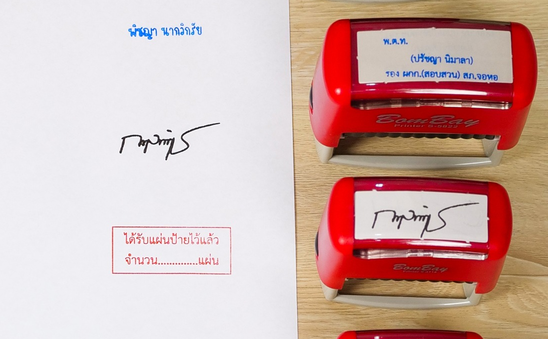 พิชญา นาควิกรัย
ได้รับแผ่นป้ายไว้แล้ว
จำนวน..............แผ่น
พ.ต.ท.
(ปรัชญา นิมาลา)
รอง ผกก.(สอบสวน) สภ.จอหอ
BomBay
BomBay